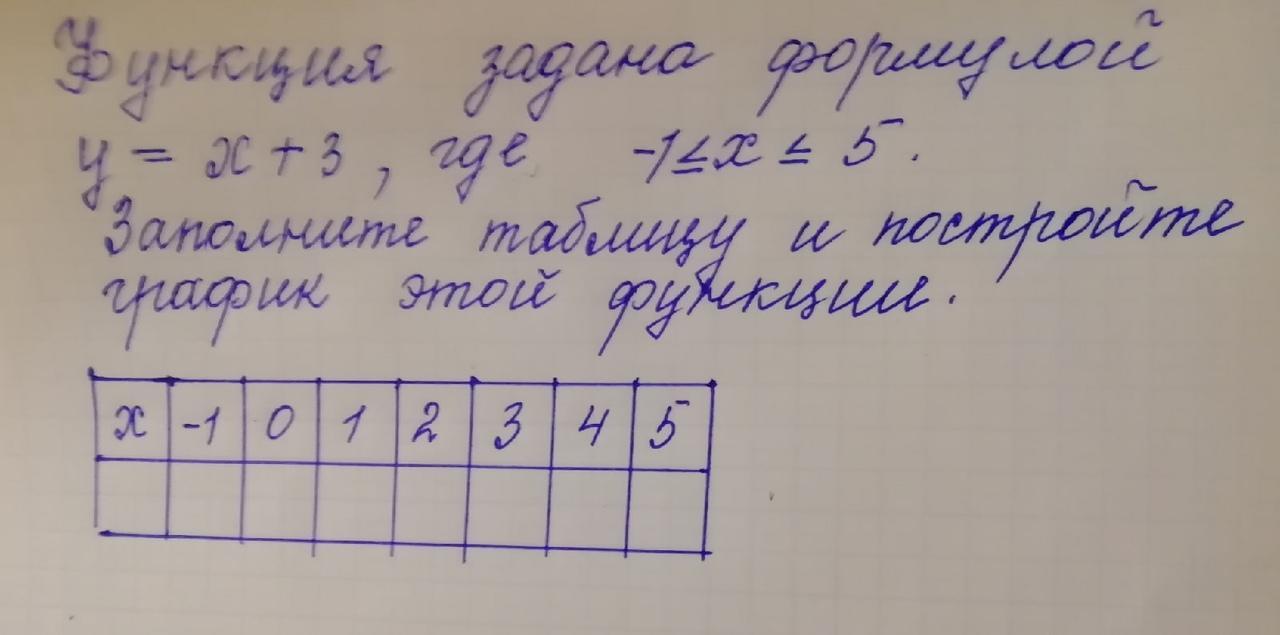 Функция задана формулой
y = x + 3, где -1 ≤ x ≤ 5.
Заполните таблицу и постройте
график этой функции.
x -1 0 1 2 3 4 5